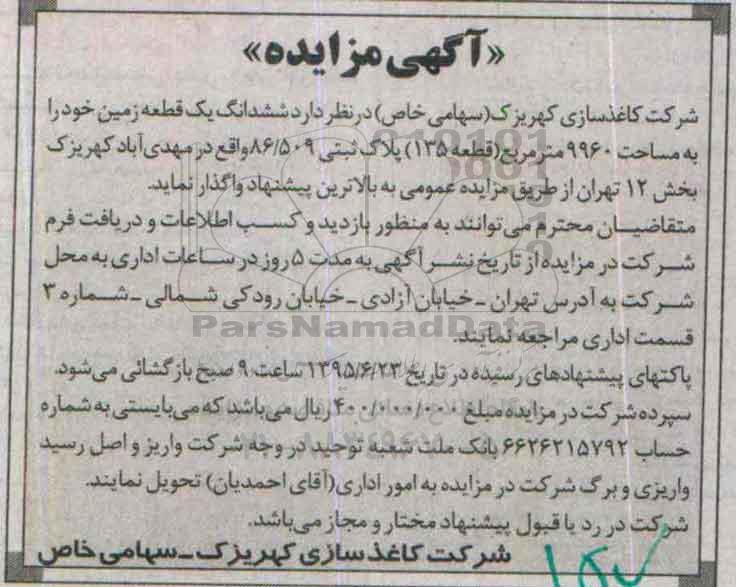 «آگهی مزایده»
شرکت کاغذسازی کهریزک(سهامی خاص)درنظر دارد ششدانگ یک قطعه زمین خود را
به مساحت ۹۹۶۰ مترمربع(قطعه ۱۳۵) پلاک ثبتی ۸۶/۵۰۹واقع در مهدی‌آباد کهریزک
بخش ۱۲ تهران از طریق مزایده عمومی به بالاترین پیشنهاد واگذار نماید.
متقاضیان محترم می‌توانند به منظور بازدید و کسب اطلاعات و دریافت فرم
شرکت در مزایده از تاریخ نشر آگهی به مدت ۵ روز در ساعات اداری به محل
شرکت به آدرس تهران -خیابان آزادی -خیابان رودکی شمالی -شماره ۳
ParsNamadData
قسمت اداری مراجعه نمایند.
پاکتهای پیشنهادهای رسیده در تاریخ ۱۳۹۵/۶/۲۳ ساعت ۹ صبح بازگشائی می‌شود.
سپرده شرکت در مزایده مبلغ ۴۰۰/۰۰۰/۰۰۰ ریال می‌باشد که می‌بایستی به شماره
حساب ۶۶۲۶۲۱۵۷۹۲ بانک ملت شعبه توحید در وجه شرکت واریز و اصل رسید
واریزی و برگ شرکت در مزایده به امور اداری(آقای احمدیان) تحویل نمایند.
شرکت در رد یا قبول پیشنهاد مختار و مجاز می‌باشد.
شرکت کاغذ سازی کهریزک-سهامی خاص